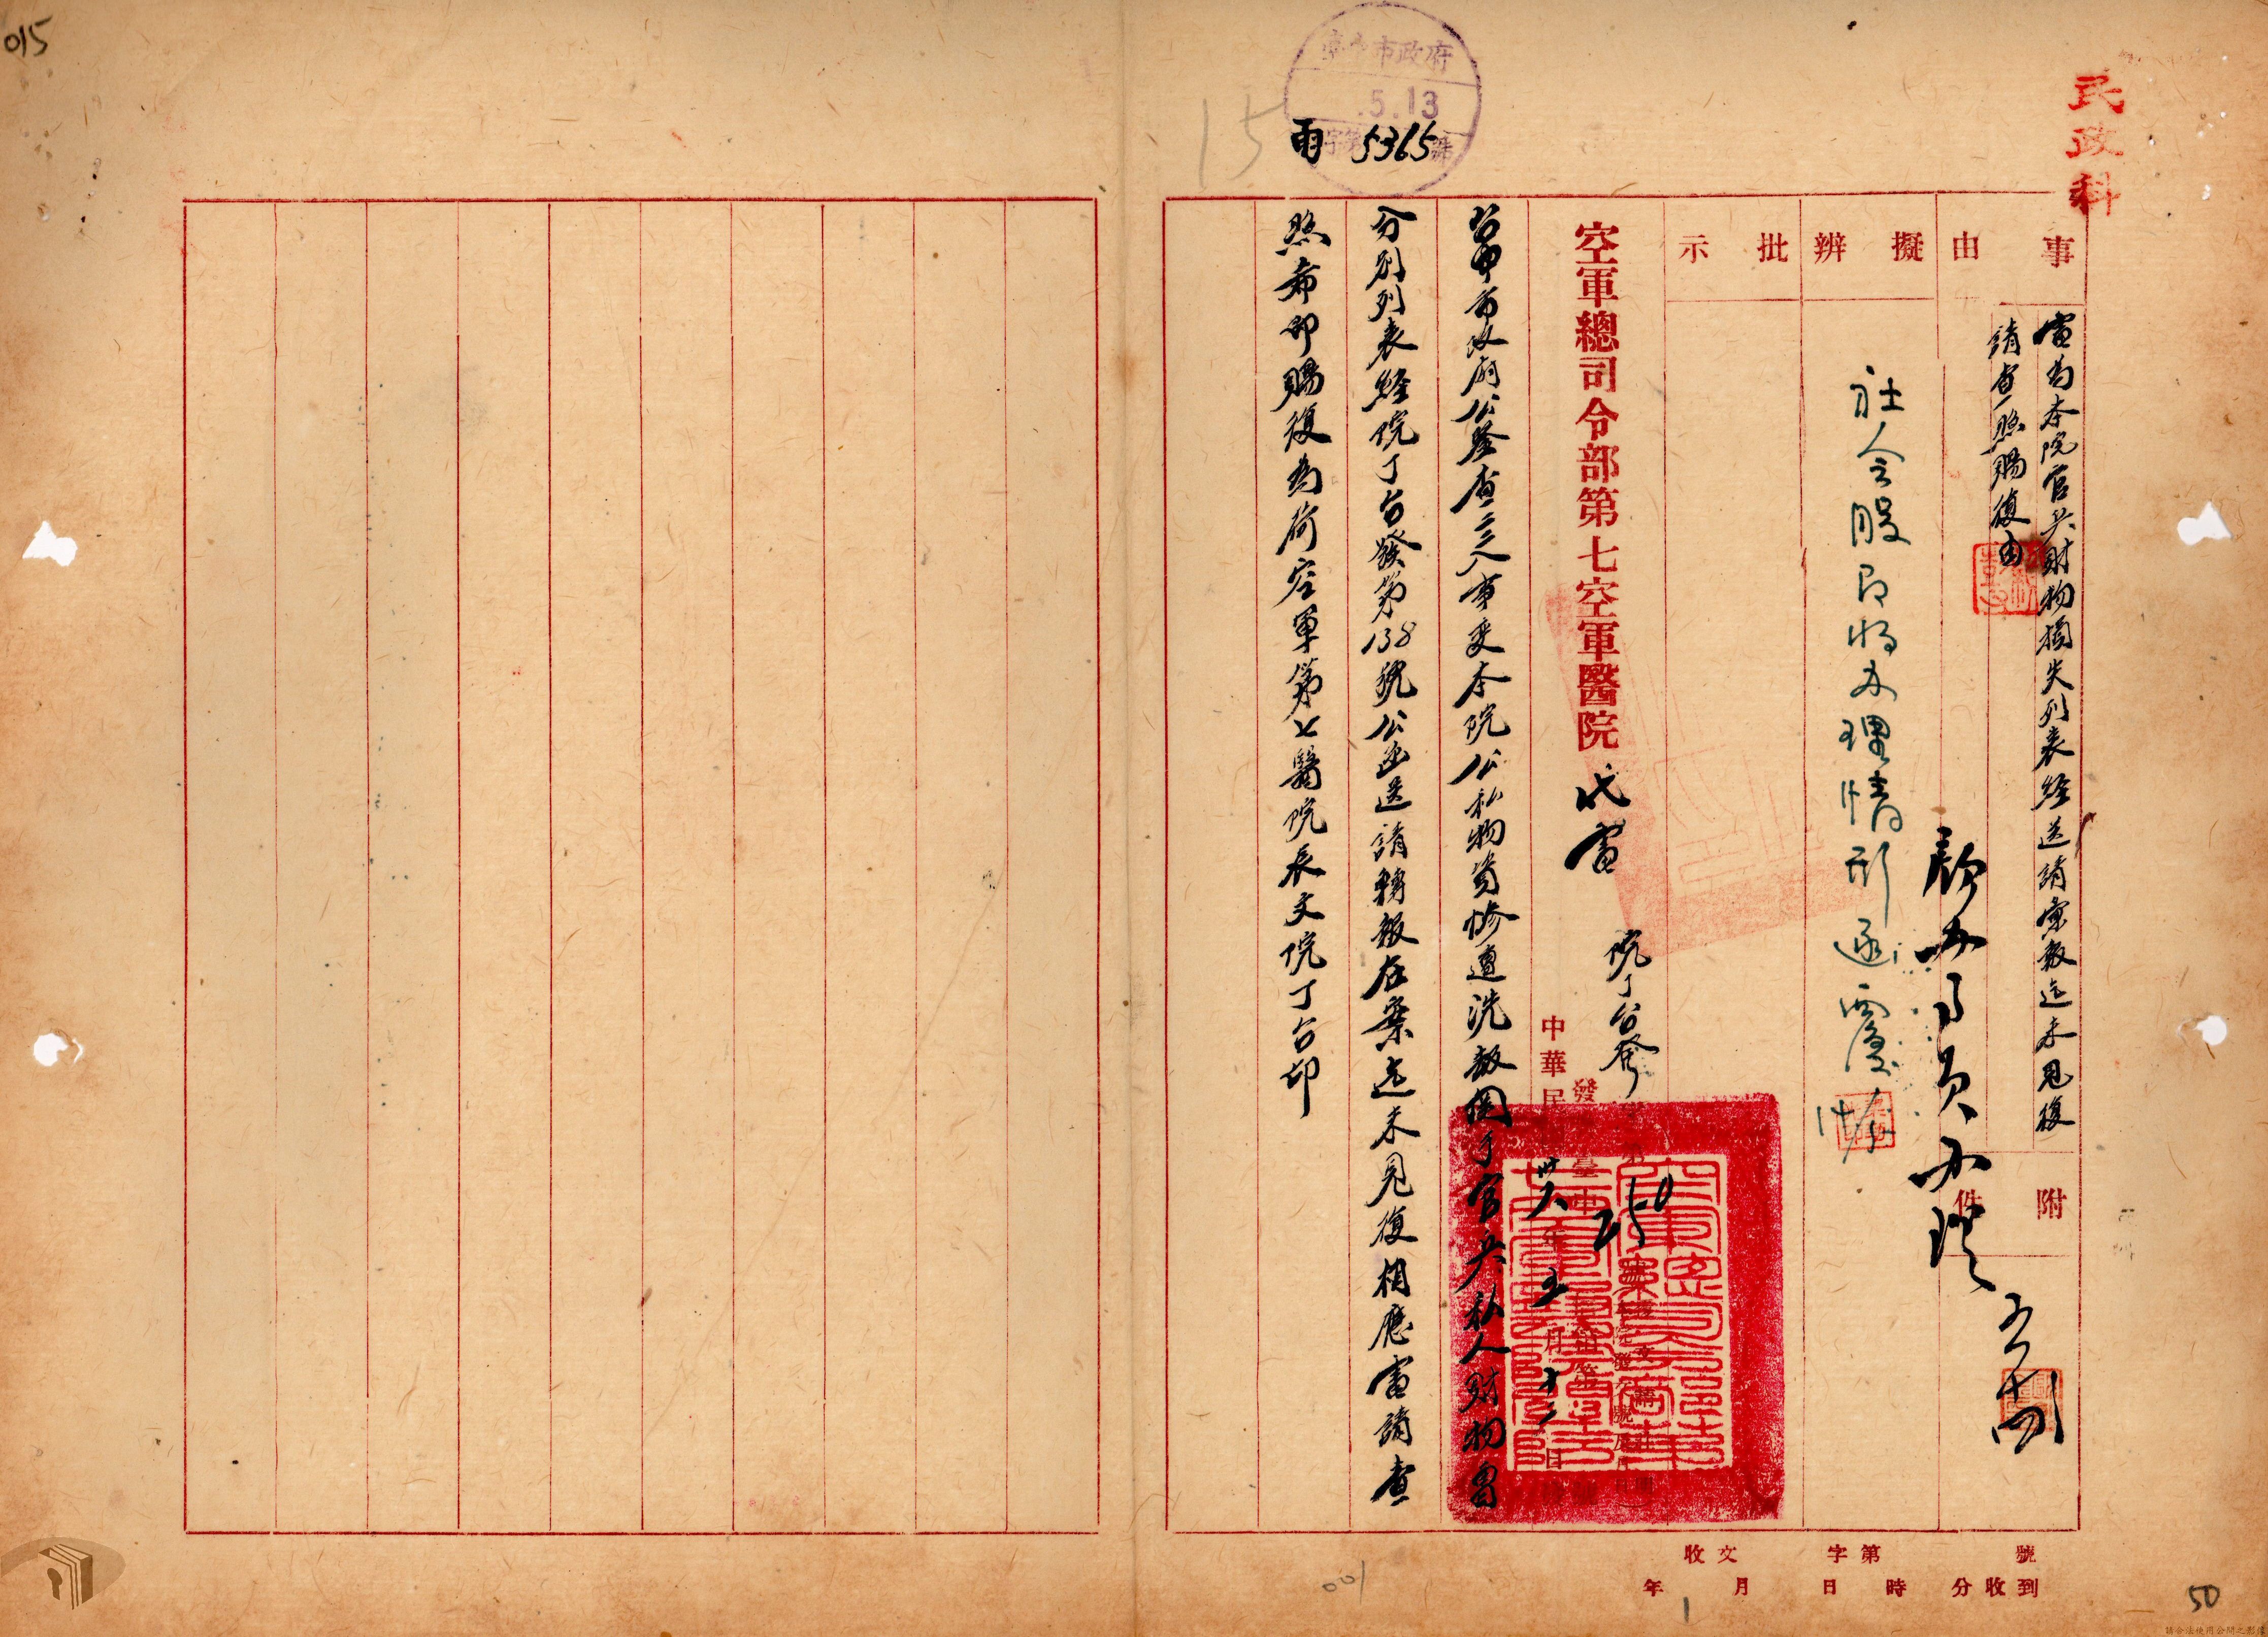 015
臺中市政府
5.13
字第 號
雨 5365
15
民政科
事由
電為本院官兵財物損失列表經送請彙報迄未見復
請查照賜復由
附件
擬辦
社會股即將辦理情形逐覆
批示
空軍總司令部第七空軍醫院 代電
院丁台發
250
中華民 卅六年五月十二日
台中市政府公鑒查二二八事变本院公私物資慘遭洗劫關于官兵私人財物曾
分別列表經院丁台發第138號公函送請轉報在案迄未見復相應電請查
照希卽賜復為荷空軍第七醫院長文院丁台印
收文 字第 號
年 月 日 時 分 收到
001
1
50
請合法使用公開之影像